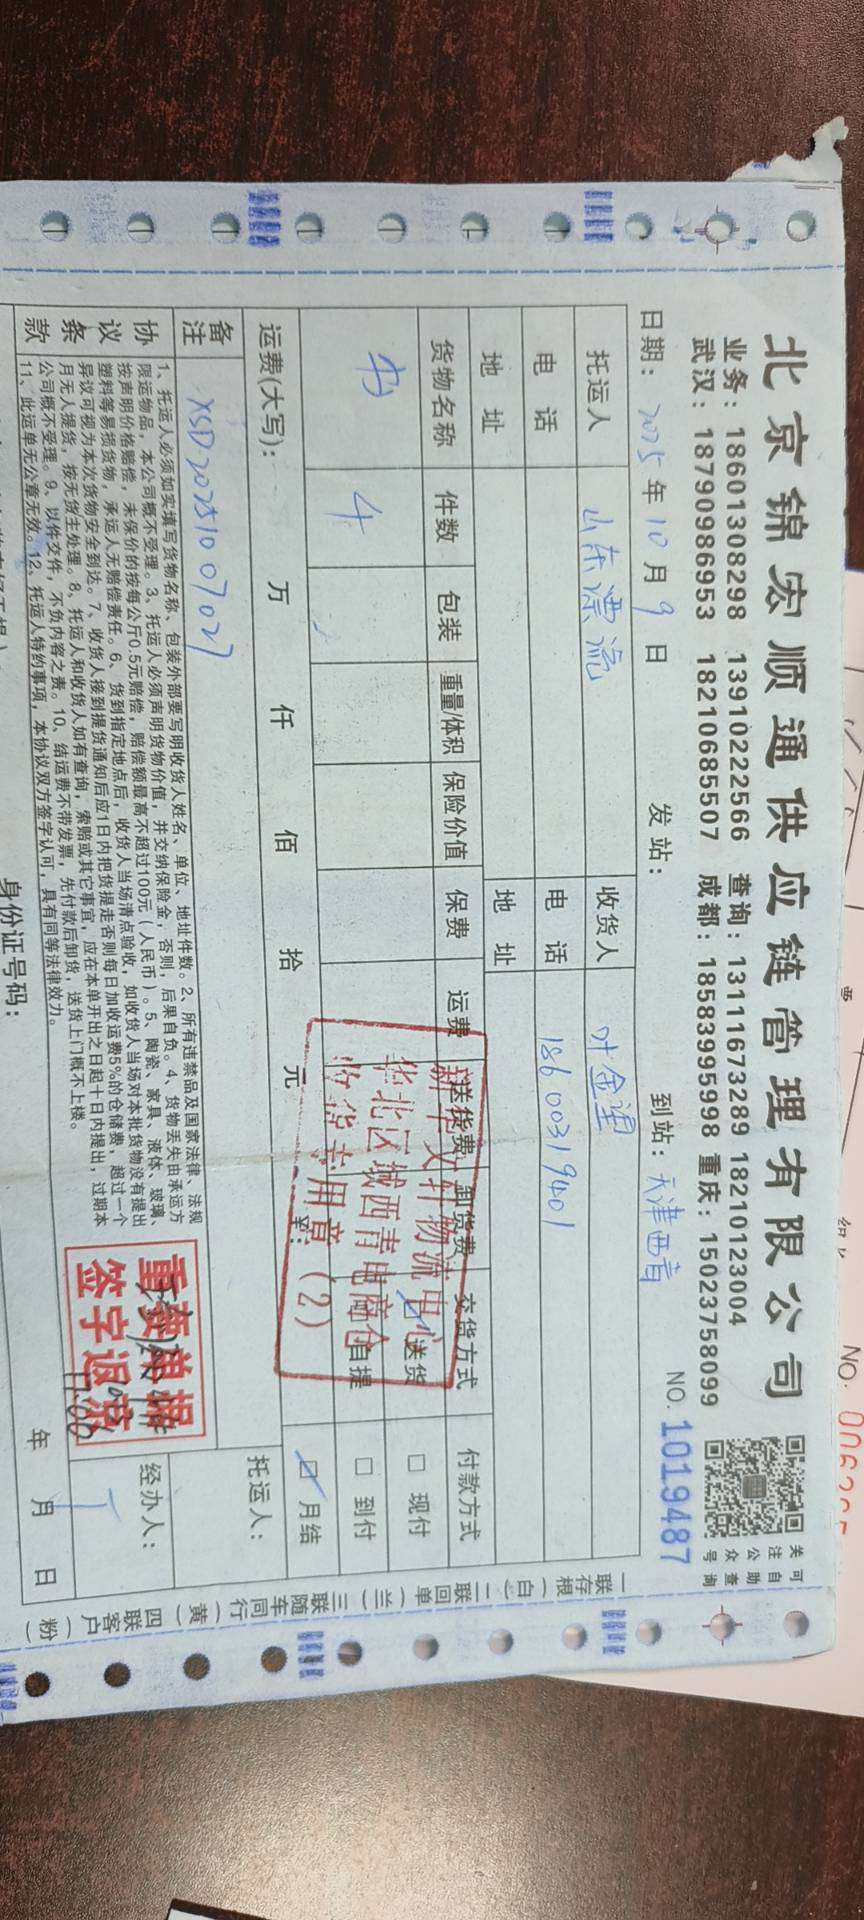 北京锦宏顺通供应链管理有限公司
业务：18601308298 13910222566 查询：13111673289 18210123004
武汉：18790986953 18210685507 成都：18583995998 重庆：15023758099
关注公众号
可自助查询
日期：2025年10月9日 发站： 到站：天津西青 NO.1019487
托运人 山东漂流 收货人 叶金望
电话 电话 18600319401
地址 地址
货物名称 件数 包装 重量/体积 保险价值 保费 运费 送货费 卸货费 交货方式 付款方式
书 4 送货 □ 现付
自提 □ 到付
运费(大写)： 万 仟 佰 拾 元 ☑ 月结
新华文轩物流中心
华北区域西青电商仓
收货专用章（2）
备注 XSD20251007027
托运人：
协议条款
1、托运人必须如实填写货物名称、包装外部要写明收货人姓名、单位、地址件数。2、所有违禁品及国家法律、法规
限运物品，本公司概不受理。3、托运人必须声明货物价值，并交纳保险金，否则，后果自负。4、货物丢失由承运方
按声明价格赔偿，未保价的按每公斤0.5元赔偿，赔偿额最高不超过100元（人民币）。5、陶瓷、家具、液体、玻璃、
塑料等易损货物，承运人无赔偿责任。6、货到指定地点后，收货人当场清点验收，如收货人当场对本批货物没有提出
异议可视为本次货物安全到达。7、收货人接到提货通知后应1日内把货提走否则每日加收运费5%的仓储费，超过一个
月无人提货，按无货主处理。8、托运人和收货人如有查询，索赔或其它事宜，应在本单开出之日起十日内提出，过期本
公司概不受理。9、以件交件，不负内容之责。10、结运费不带发票，先付款后卸货，送货上门概不上楼。
11、此运单无公章无效。12、托运人特约事项，本协议双方签字认可，具有同等法律效力。
签字返
经办人：
年 月 日
身份证号码：
一联存根（白） 二联回单（兰） 三联随车同行（黄） 四联客户（粉）
NO.